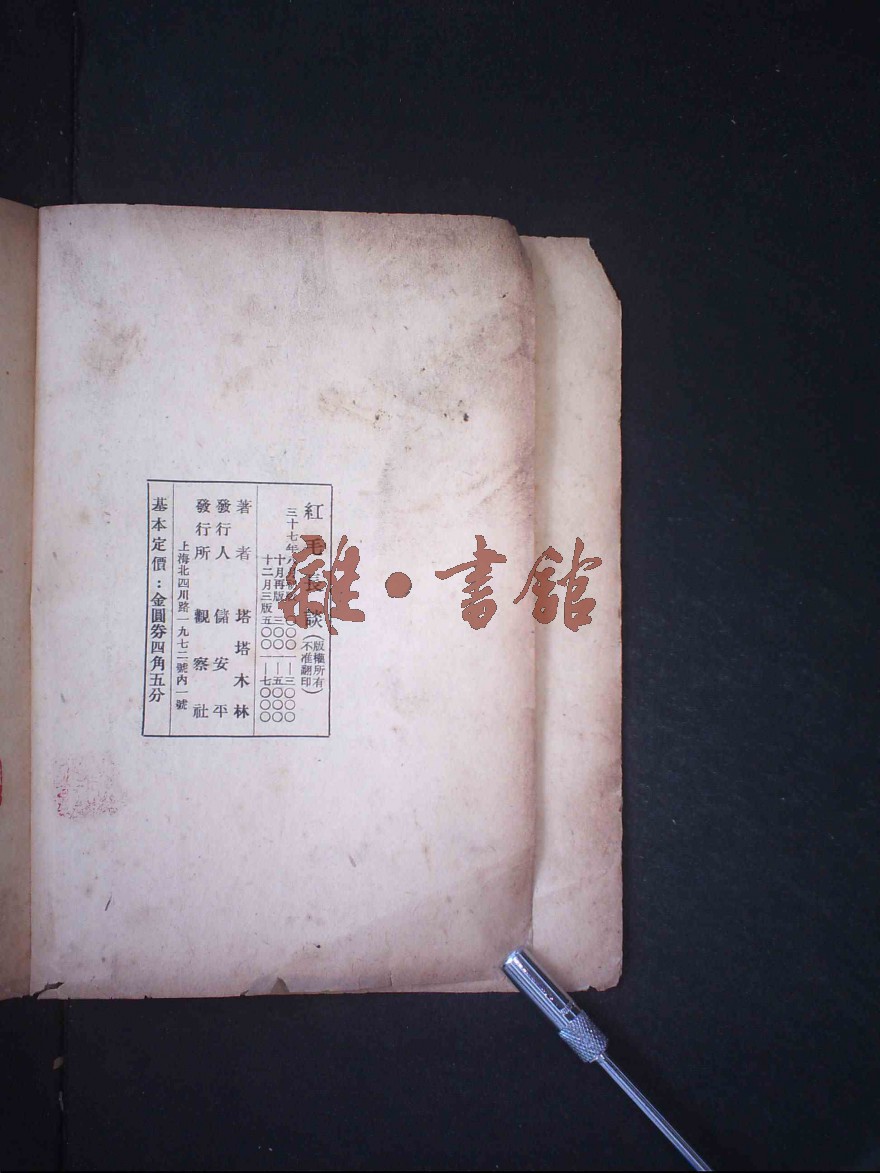 紅毛長談(版權所有
不准翻印)
三十七年八月初版一〇〇〇—三〇〇〇
十月再版三〇〇一—五〇〇〇
十二月三版五〇〇一—七〇〇〇
著者 塔塔木林
發行人 儲安平
發行所 觀察社
上海北四川路一九七二號內一號
基本定價:金圓券四角五分
雜·書館